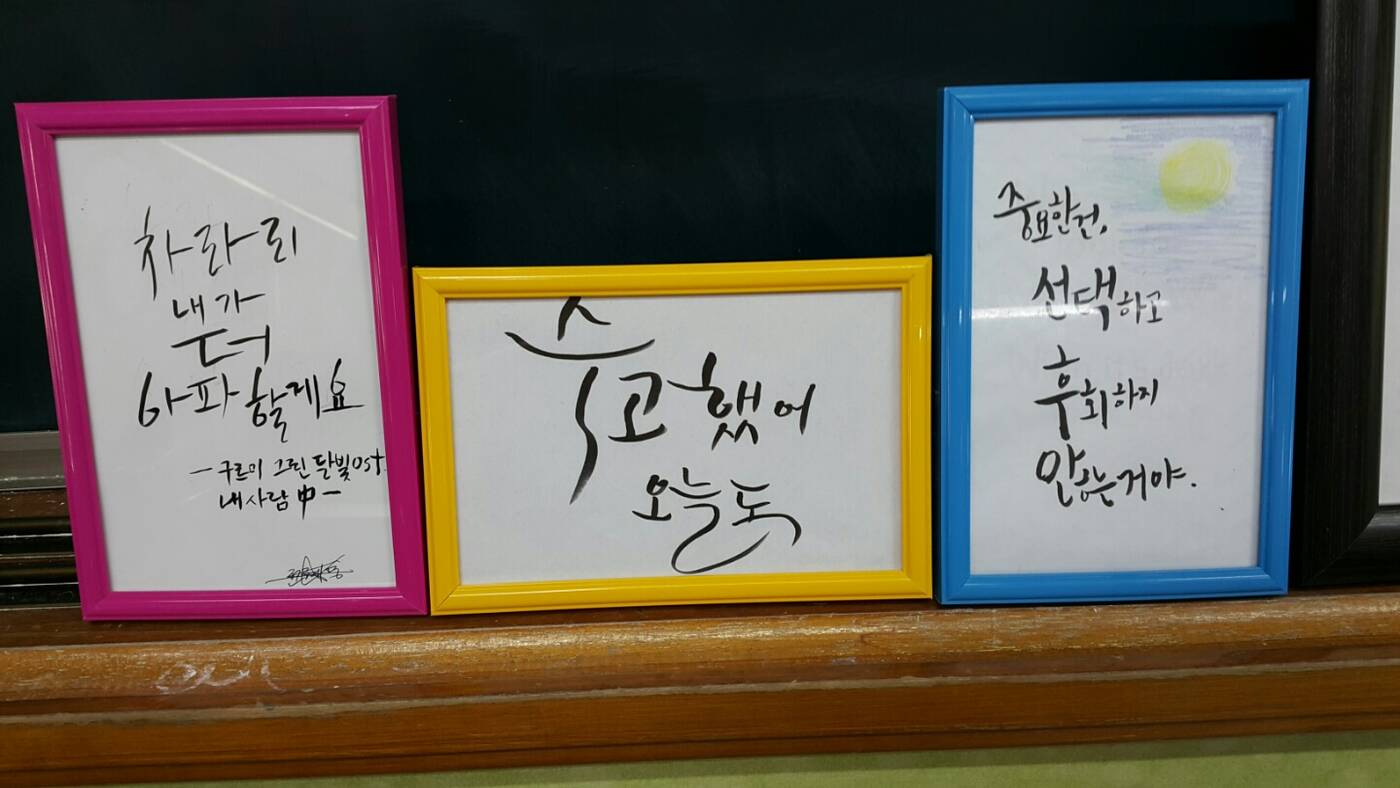 차라리
내가
더
아파할게요
- 구르미 그린 달빛 ost
내사람 中 -
수고했어
오늘도
중요한건,
선택하고
후회하지
않는거야.